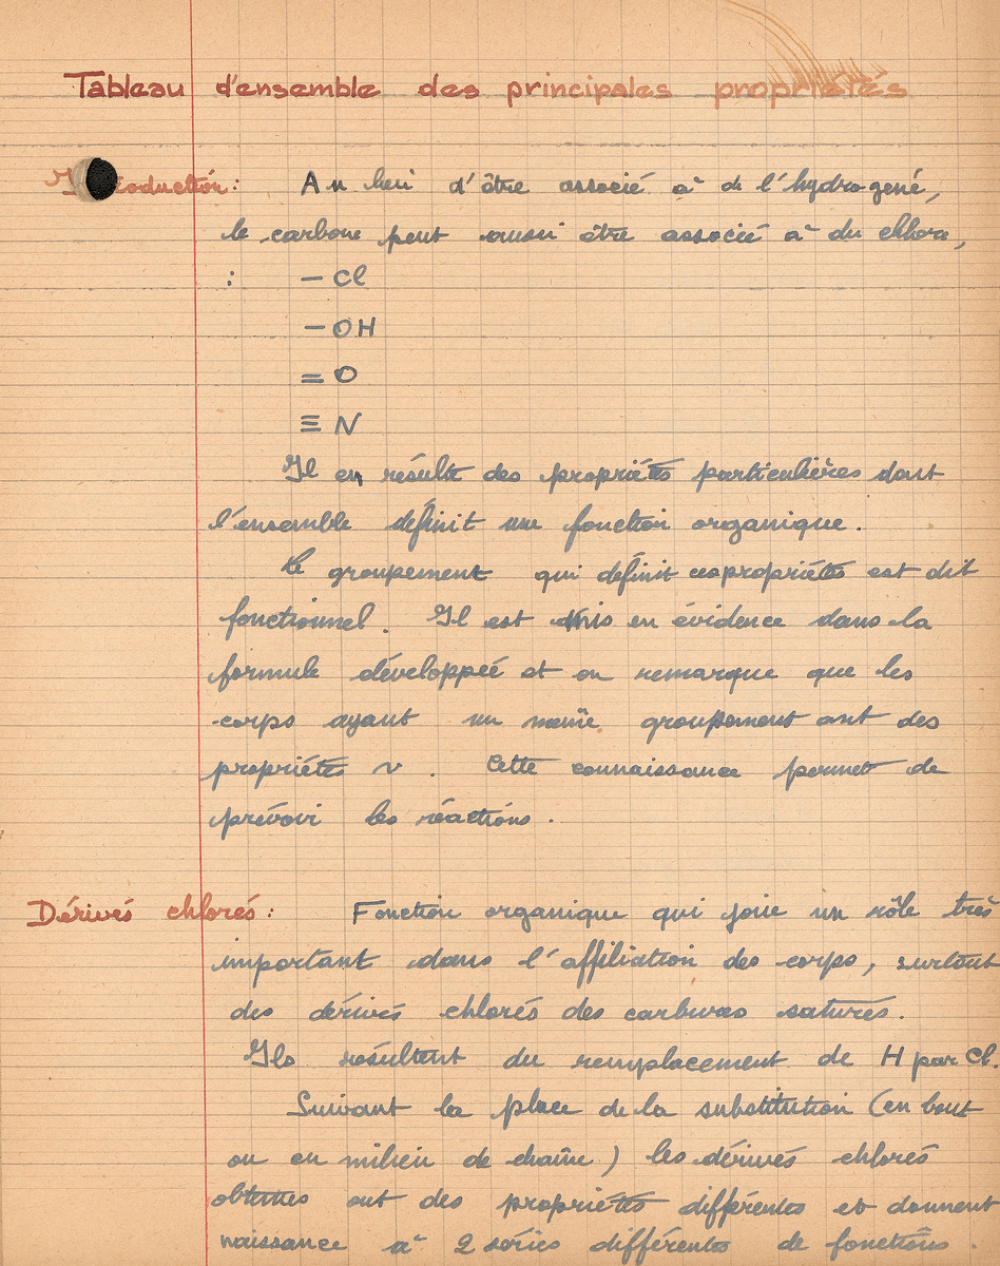 Tableau d'ensemble des principales propriétés
Introduction: Au lieu d'être associé à de l'hydrogené,
le carbone peut aussi être associé à du chlore,
: — Cl
— OH
= O
≡ N
Il en résulte des propriétés particulières dont
l'ensemble définit une fonction organique.
Le groupement qui définit ces propriétés est dit
fonctionnel. Il est mis en évidence dans la
formule développée et on remarque que les
corps ayant un même groupement ont des
propriétés ~. Cette connaissance permet de
prévoir les réactions.
Dérivés chlorés: Fonction organique qui joue un rôle très
important dans l'affiliation des corps, surtout
des dérivés chlorés des carbures saturés.
Ils résultent du remplacement de H par Cl.
Suivant la place de la substitution (en bout
ou en milieu de chaîne) les dérivés chlorés
obtenus ont des propriétés différentes et donnent
naissance à 2 séries différentes de fonctions.